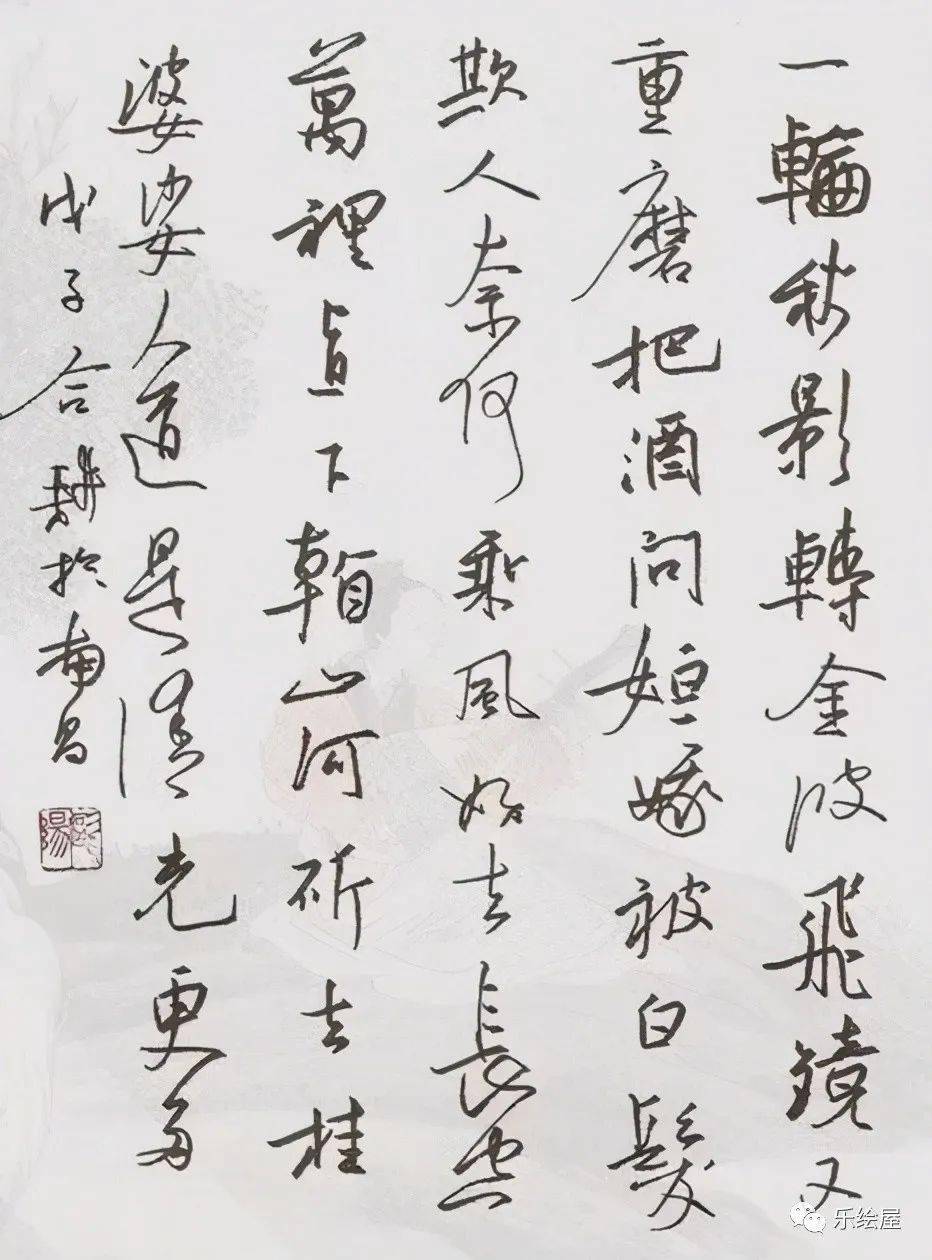 一輪秋影轉金波飛鏡又
重磨把酒問姮娥被白髮
欺人奈何乘風好去長空
萬裡直下看山河斫去桂
婆娑人道是清光更多
戊子合耕於南昌
乐绘屋